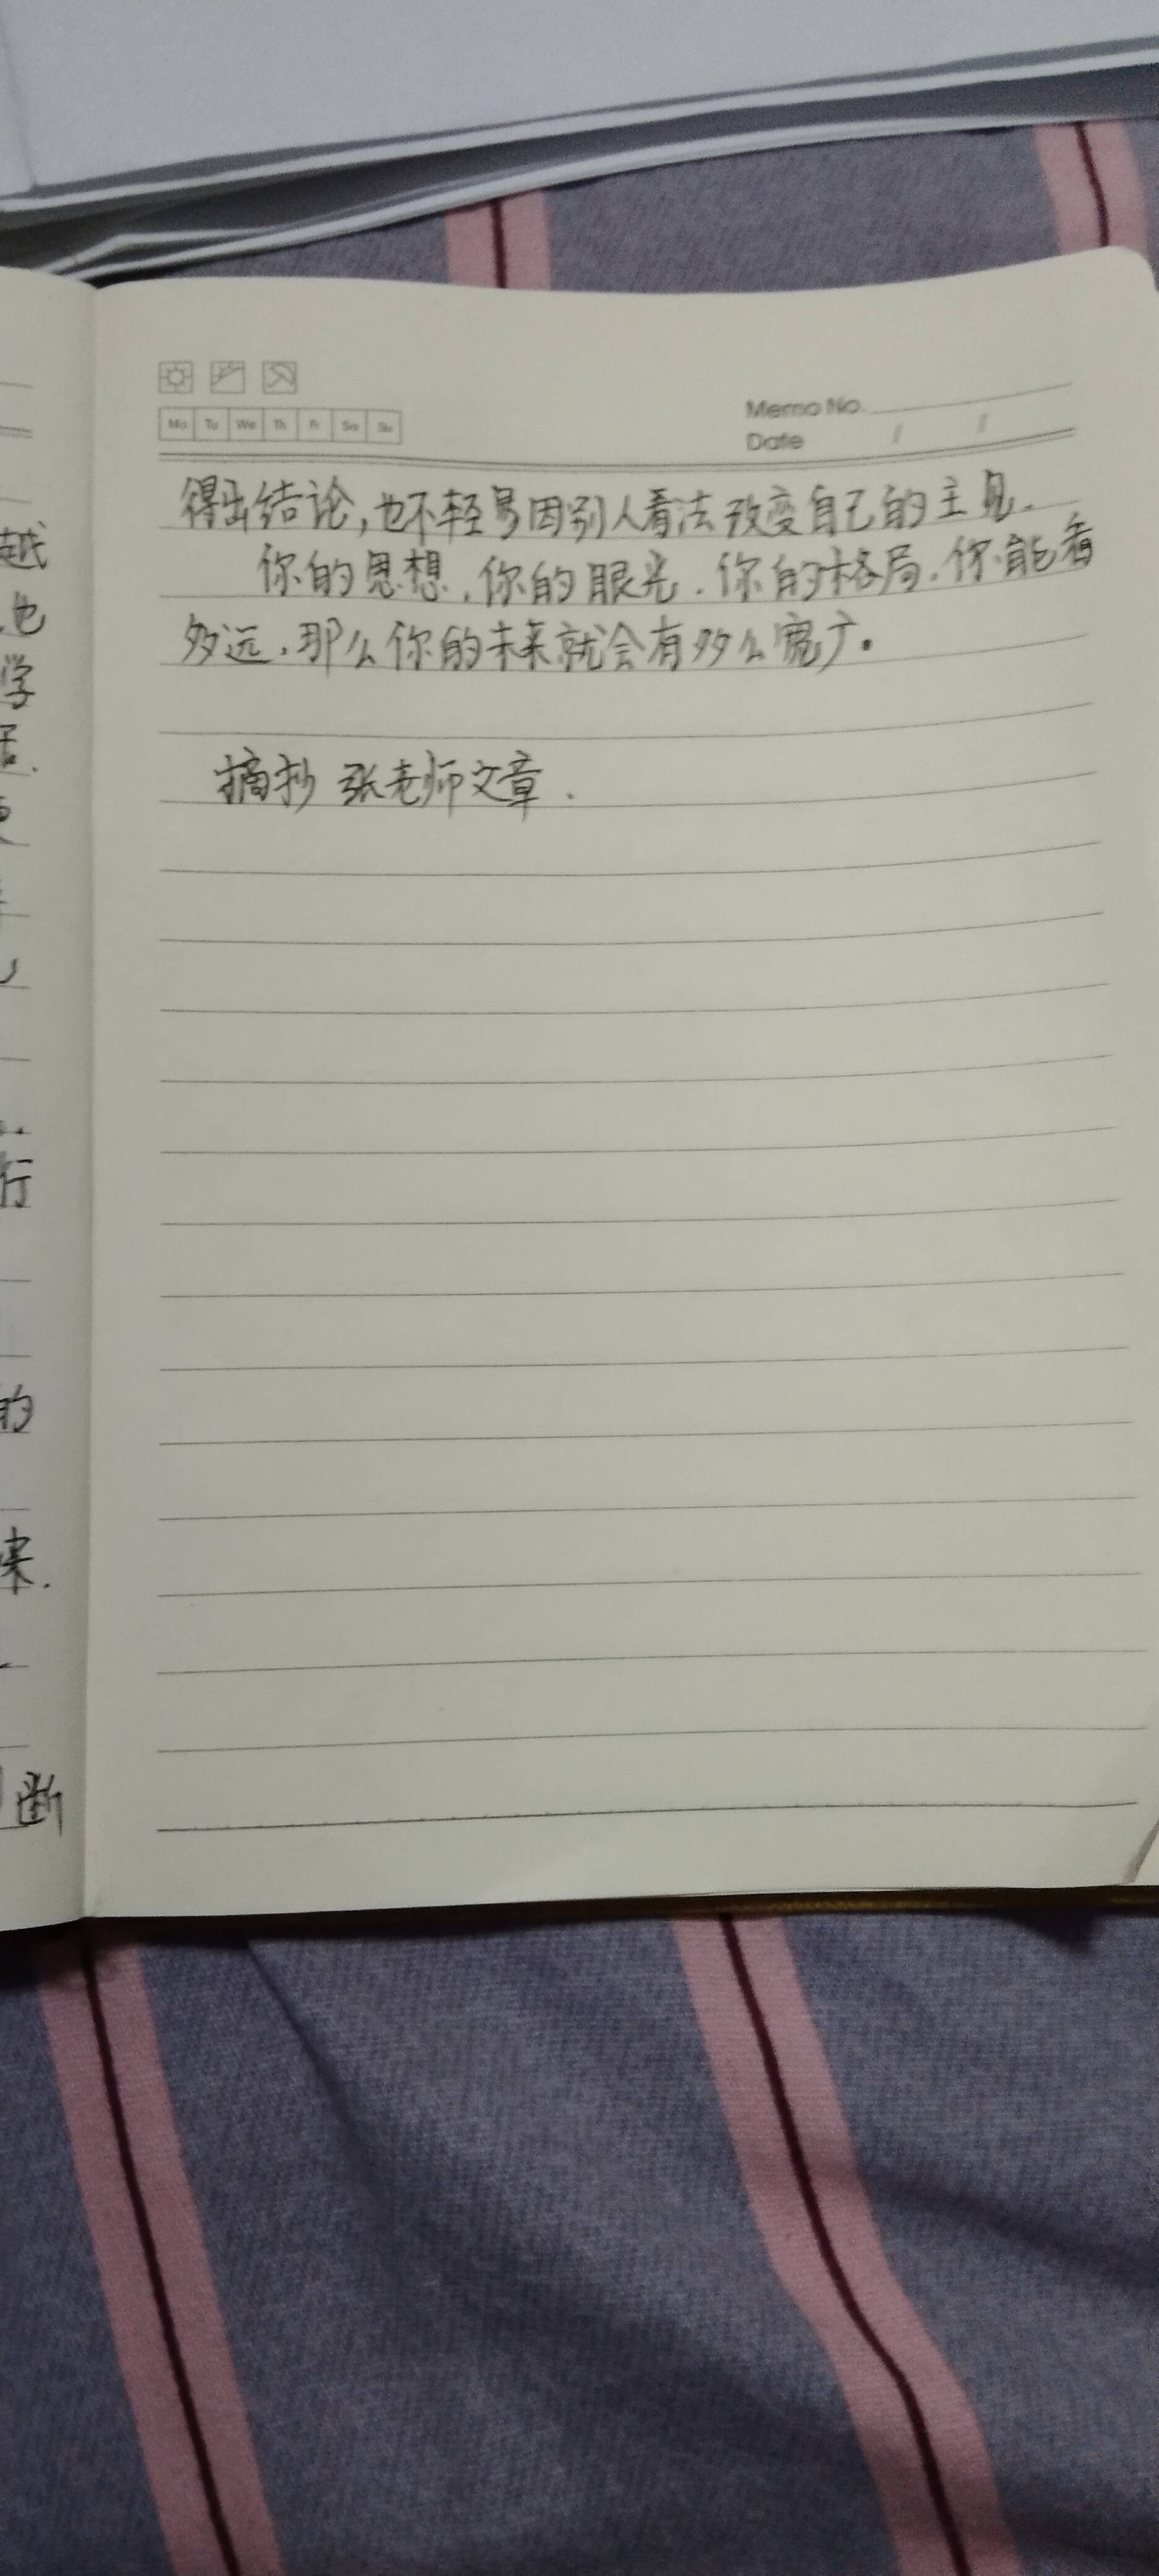 越
也
学
行
的
来.
断
Mo Tu We Th Fr Sa Su
Memo No.
Date / /
得出结论,也不轻易因别人看法改变自己的主见.
你的思想,你的眼光.你的格局.你能看
多远,那么你的未来就会有多么宽广。
摘抄 张老师文章.